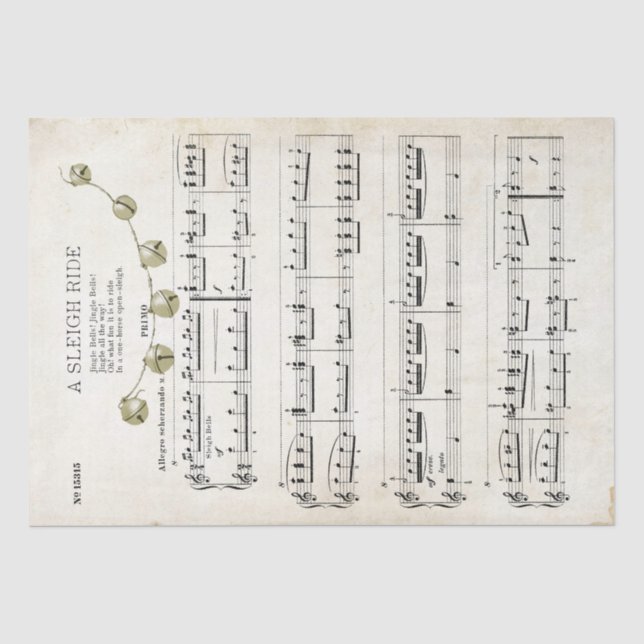 A SLEIGH RIDE
Jingle Bells! Jingle Bells!
Jingle all the way!
Oh! what fun it is to ride
In a one-horse open-sleigh.
No 15315
PRIMO
Allegro scherzando M.
8
Sleigh Bells
8
8
cresc.
legato
8
1
2